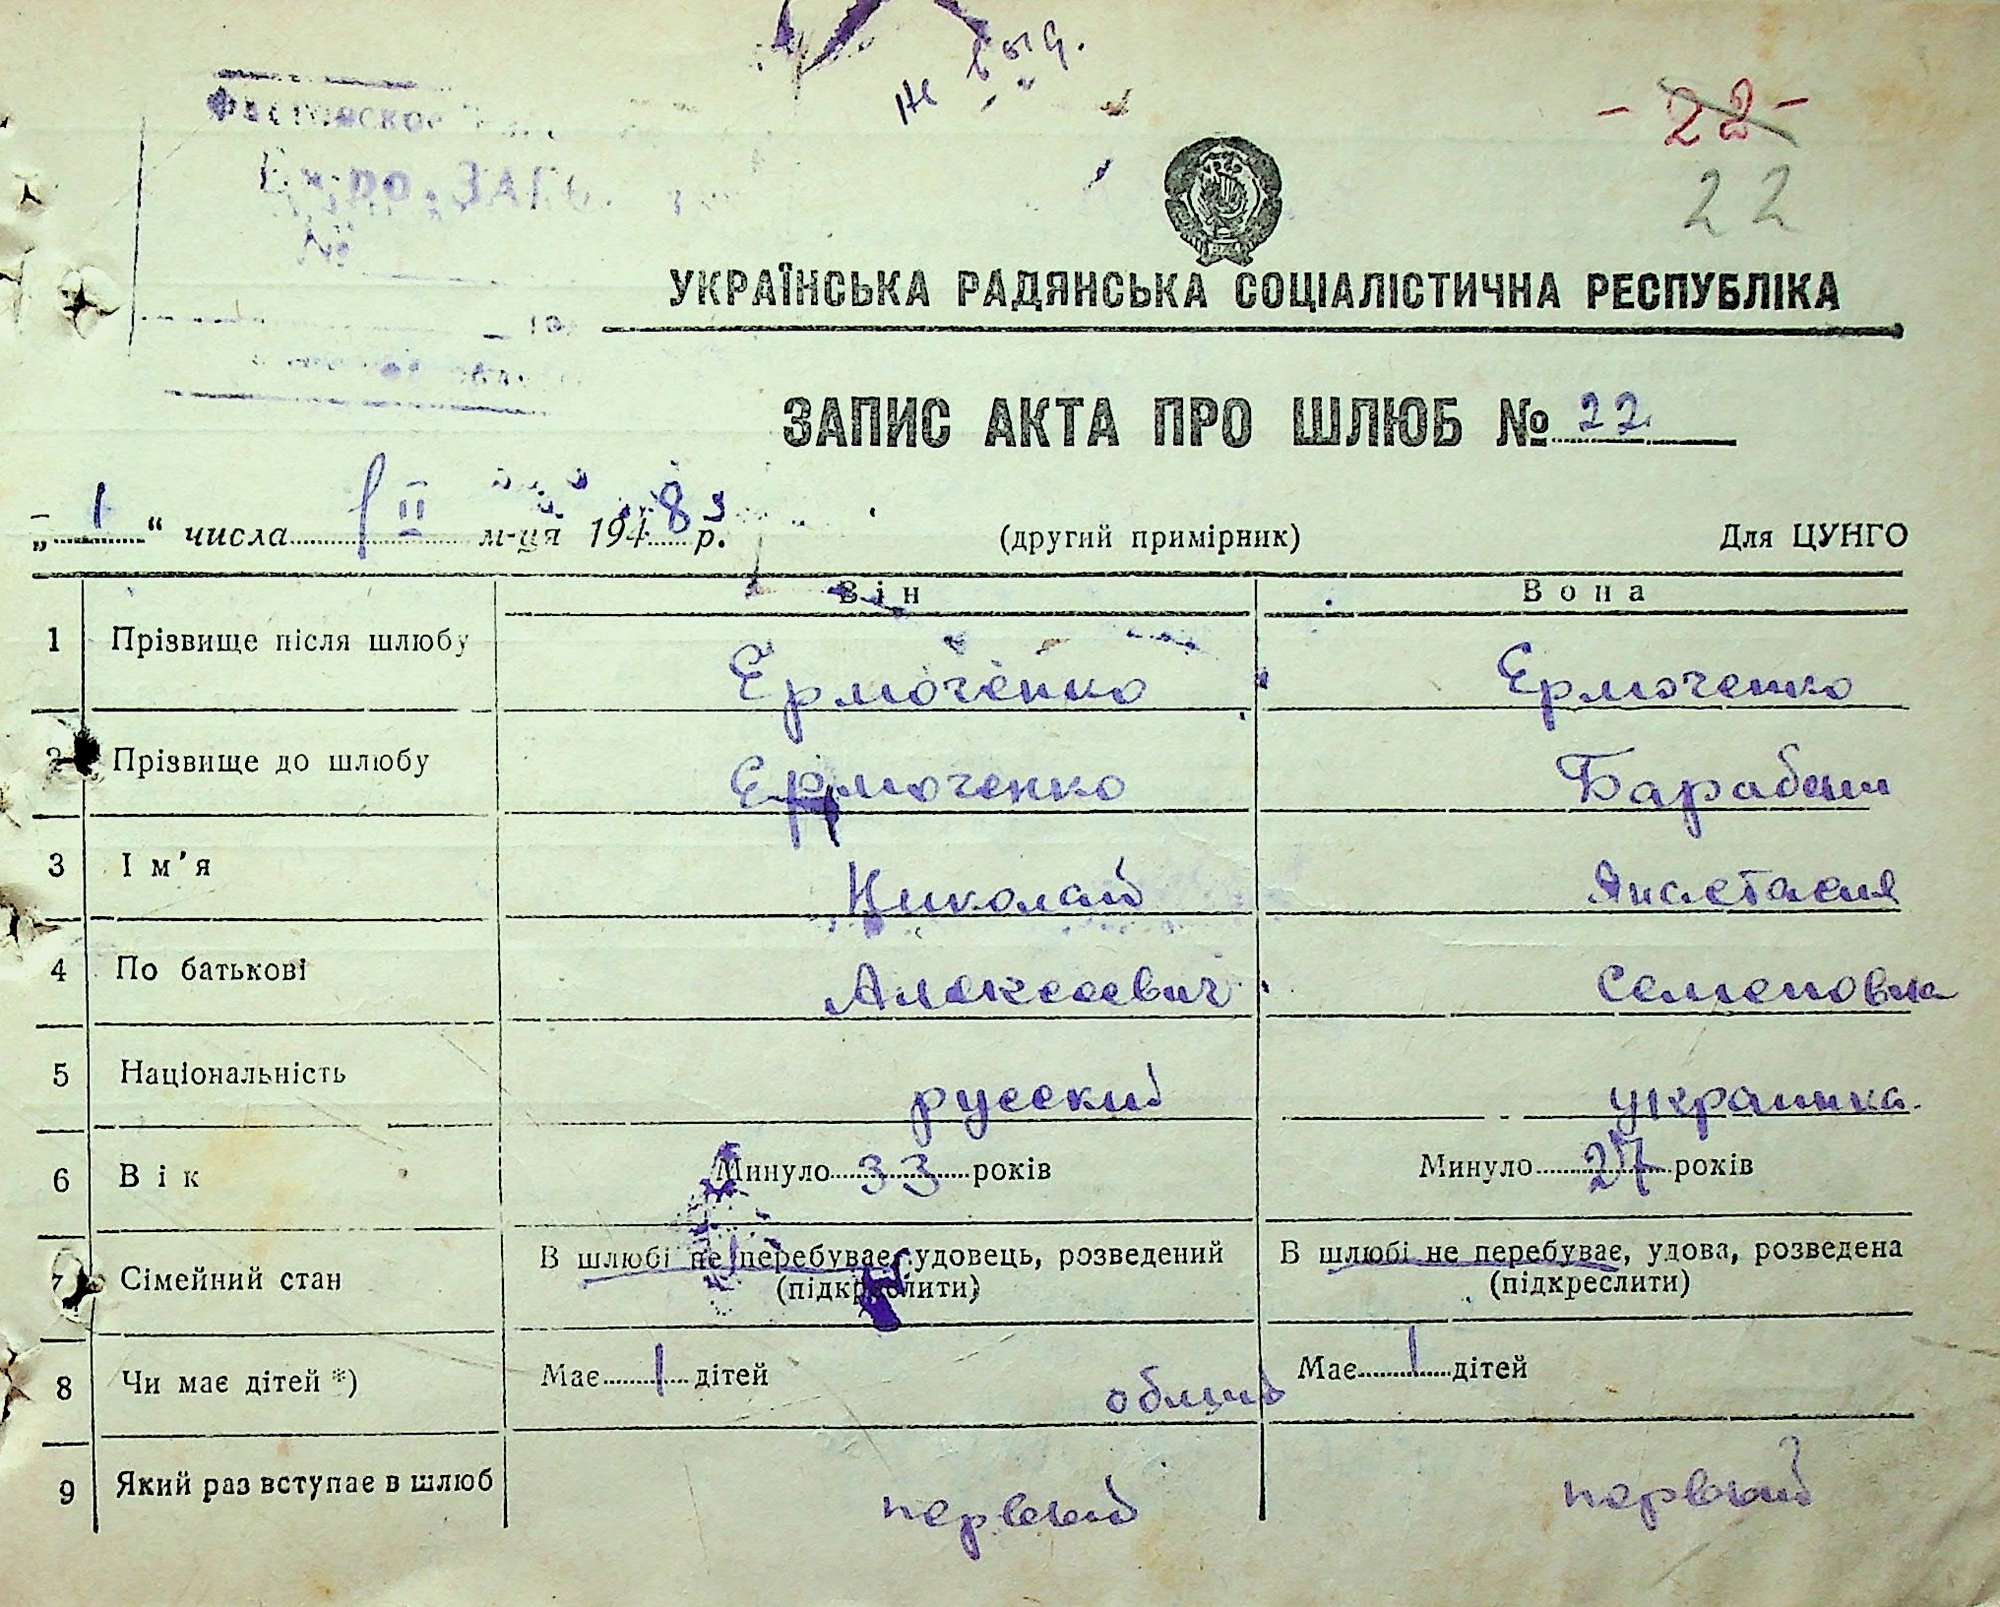 не выд.
- 22 -
22
Фастовское
Бюро ЗАГС
№
УКРАЇНСЬКА РАДЯНСЬКА СОЦІАЛІСТИЧНА РЕСПУБЛІКА
ЗАПИС АКТА ПРО ШЛЮБ № 22
„ 1 “ числа II м-ця 1948 р. (другий примірник) Для ЦУНГО
Він Вона
1 Прізвище після шлюбу Ермоченко Ермоченко
2 Прізвище до шлюбу Ермоченко Барабаш
3 Ім'я Николай Анастасия
4 По батькові Алексеевич Семеновна
5 Національність русский украинка.
6 Вік Минуло 33 років Минуло 27 років
7 Сімейний стан В шлюбі не перебуває, удовець, розведений В шлюбі не перебуває, удова, розведена
(підкреслити) (підкреслити)
8 Чи має дітей *) Має 1 дітей общий Має 1 дітей
9 Який раз вступає в шлюб первый первый